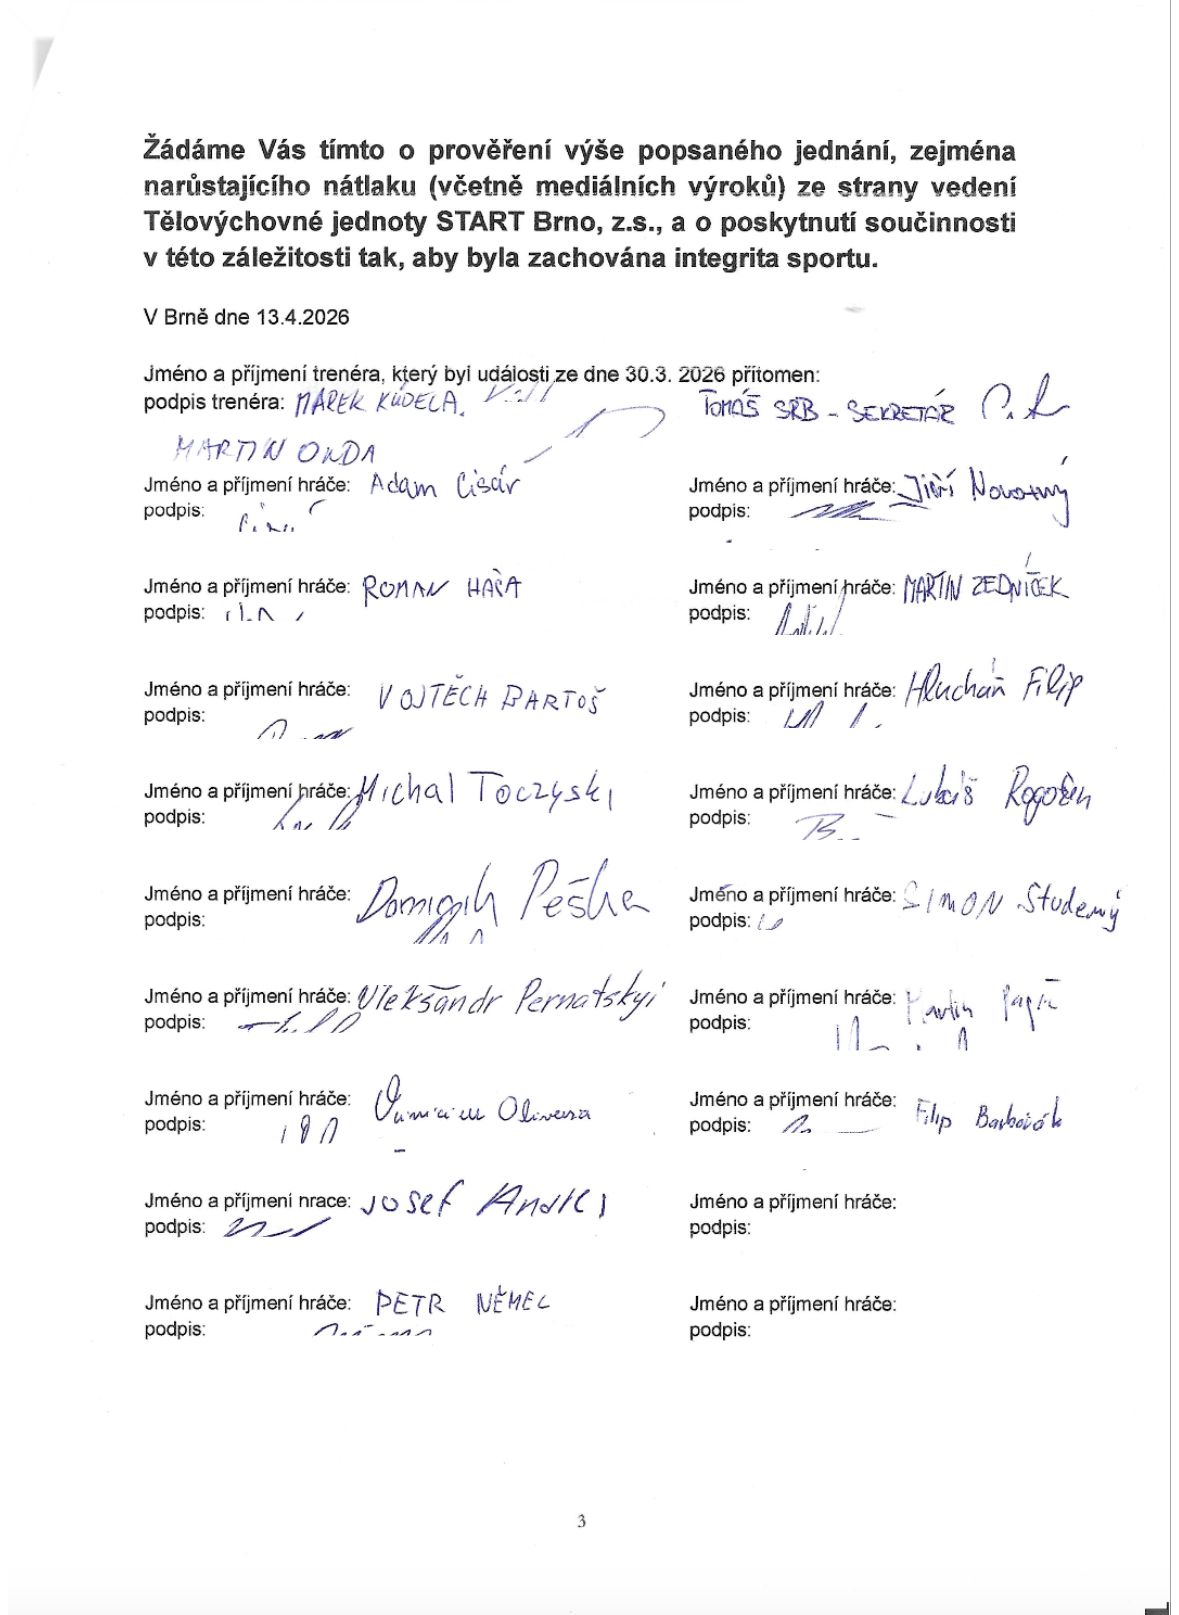 Žádáme Vás tímto o prověření výše popsaného jednání, zejména
narůstajícího nátlaku (včetně mediálních výroků) ze strany vedení
Tělovýchovné jednoty START Brno, z.s., a o poskytnutí součinnosti
v této záležitosti tak, aby byla zachována integrita sportu.
V Brně dne 13.4.2026
Jméno a příjmení trenéra, který byl události ze dne 30.3. 2026 přítomen:
podpis trenéra: MAREK KUDELA TOMÁŠ SRB - SEKRETÁŘ
MARTIN ONDA
Jméno a příjmení hráče: Adam Cisár
podpis:
Jméno a příjmení hráče: Jiří Novotný
podpis:
Jméno a příjmení hráče: ROMAN
podpis:
Jméno a příjmení hráče: MARTIN ZEDNÍČEK
podpis:
Jméno a příjmení hráče: VOJTĚCH BARTOŠ
podpis:
Jméno a příjmení hráče: Hlucháň Filip
podpis:
Jméno a příjmení hráče: Michal Toczyski
podpis:
Jméno a příjmení hráče: Lukáš
podpis:
Jméno a příjmení hráče: Dominik Pěška
podpis:
Jméno a příjmení hráče: SIMON Studený
podpis:
Jméno a příjmení hráče: Oleksandr Pernatskyi
podpis:
Jméno a příjmení hráče: Martin
podpis:
Jméno a příjmení hráče:
podpis:
Jméno a příjmení hráče: Filip
podpis:
Jméno a příjmení hráče: JOSEF
podpis:
Jméno a příjmení hráče:
podpis:
Jméno a příjmení hráče: PETR NĚMEC
podpis:
Jméno a příjmení hráče:
podpis:
3